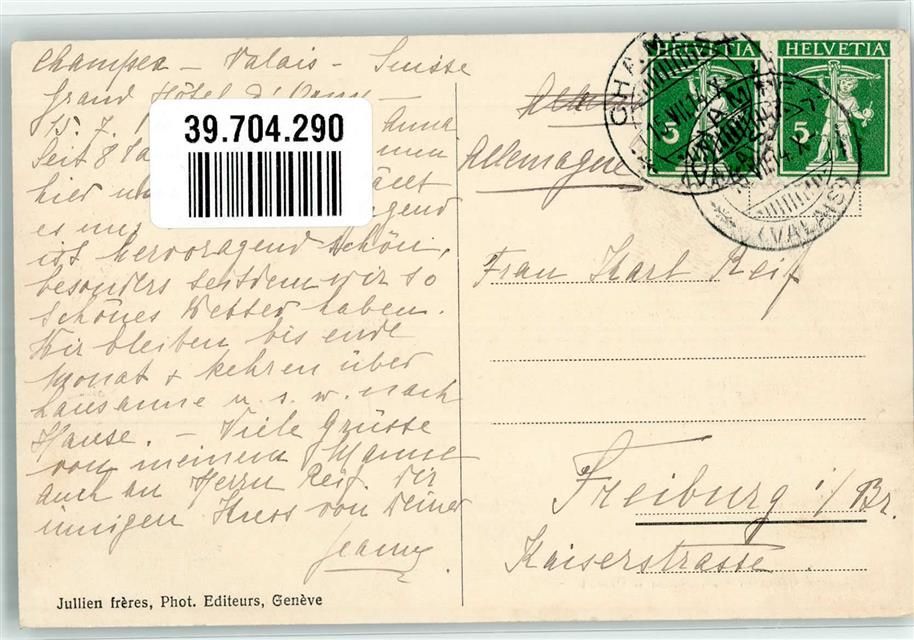 Champex – Valais – Suisse
Grand Hôtel d'
15. 7. Anna
Seit 8
hier
es
ist hervoragend schön,
besonders seitdem wir so
schönes Wetter haben.
Wir bleiben bis ende
Monat & kehren über
Lausanne u. s. w. nach
Hause. – Viele Grüsse
von meinem Manne
auch an Herrn Reif. Dir
innigen Kuss von Deiner
Jeanny
39.704.290
HELVETIA
5
HELVETIA
5
CHAMPEX
(VALAIS)
Allemagne
Frau Karl Reif
Freiburg i/Br.
Kaiserstrasse
Jullien frères, Phot. Editeurs, Genève